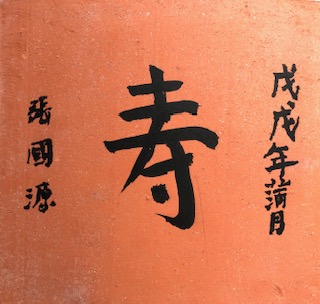 戊戌年蒲月
寿
張國源